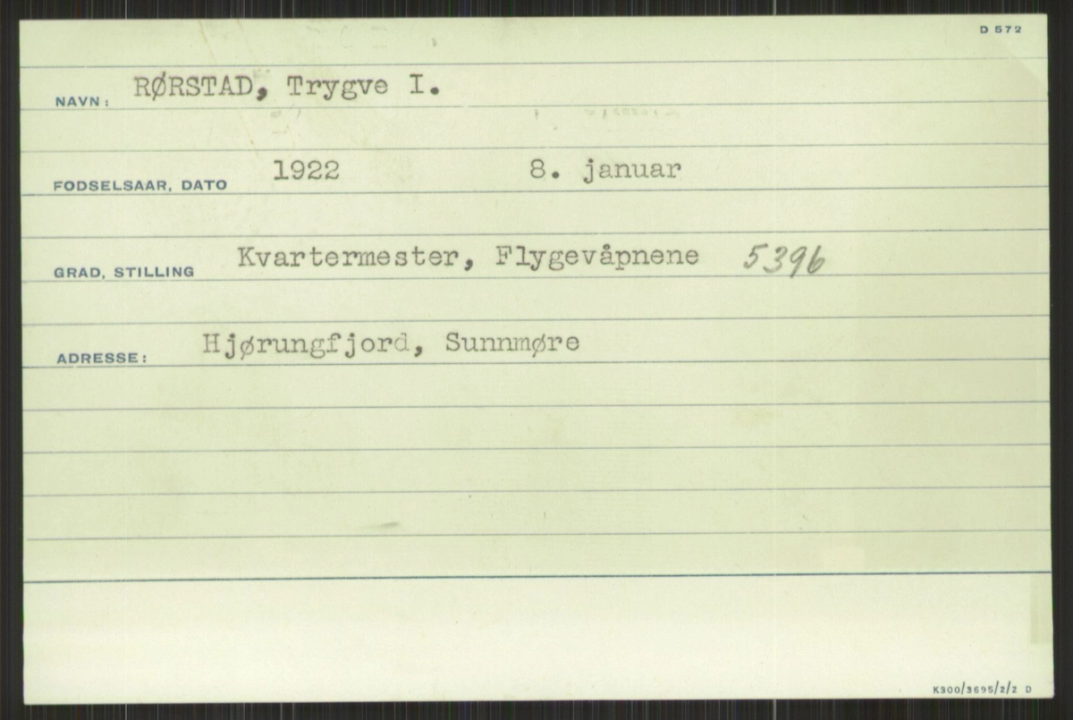 D 572
NAVN: RØRSTAD, Trygve I.
FODSELSAAR, DATO 1922 8. januar
GRAD, STILLING Kvartermester, Flygevåpnene 5396
ADRESSE: Hjørungfjord, Sunnmøre
K300/3695/2/2 D